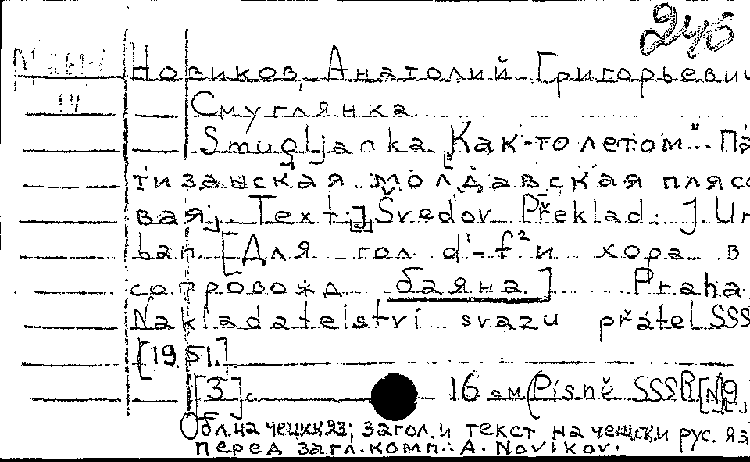 245
Новиков, Анатолий Григорьевич
14
Смуглянка
Smugljanka „Как-то летом". Па
тизанская молдавская плясо
вая; Text: J Švedov Překlad: J. Ur
ban [Для гол d'-f² и хора в
сопровожд баяна] Praha
Nakladatelství svazu přátel SSS
[1951.]
[3] с. 16 см (Písně SSSR [№
Обл. на чешияз; загол. и текст на чешски рус. яз
перед загл. комп.: A. Novikov.